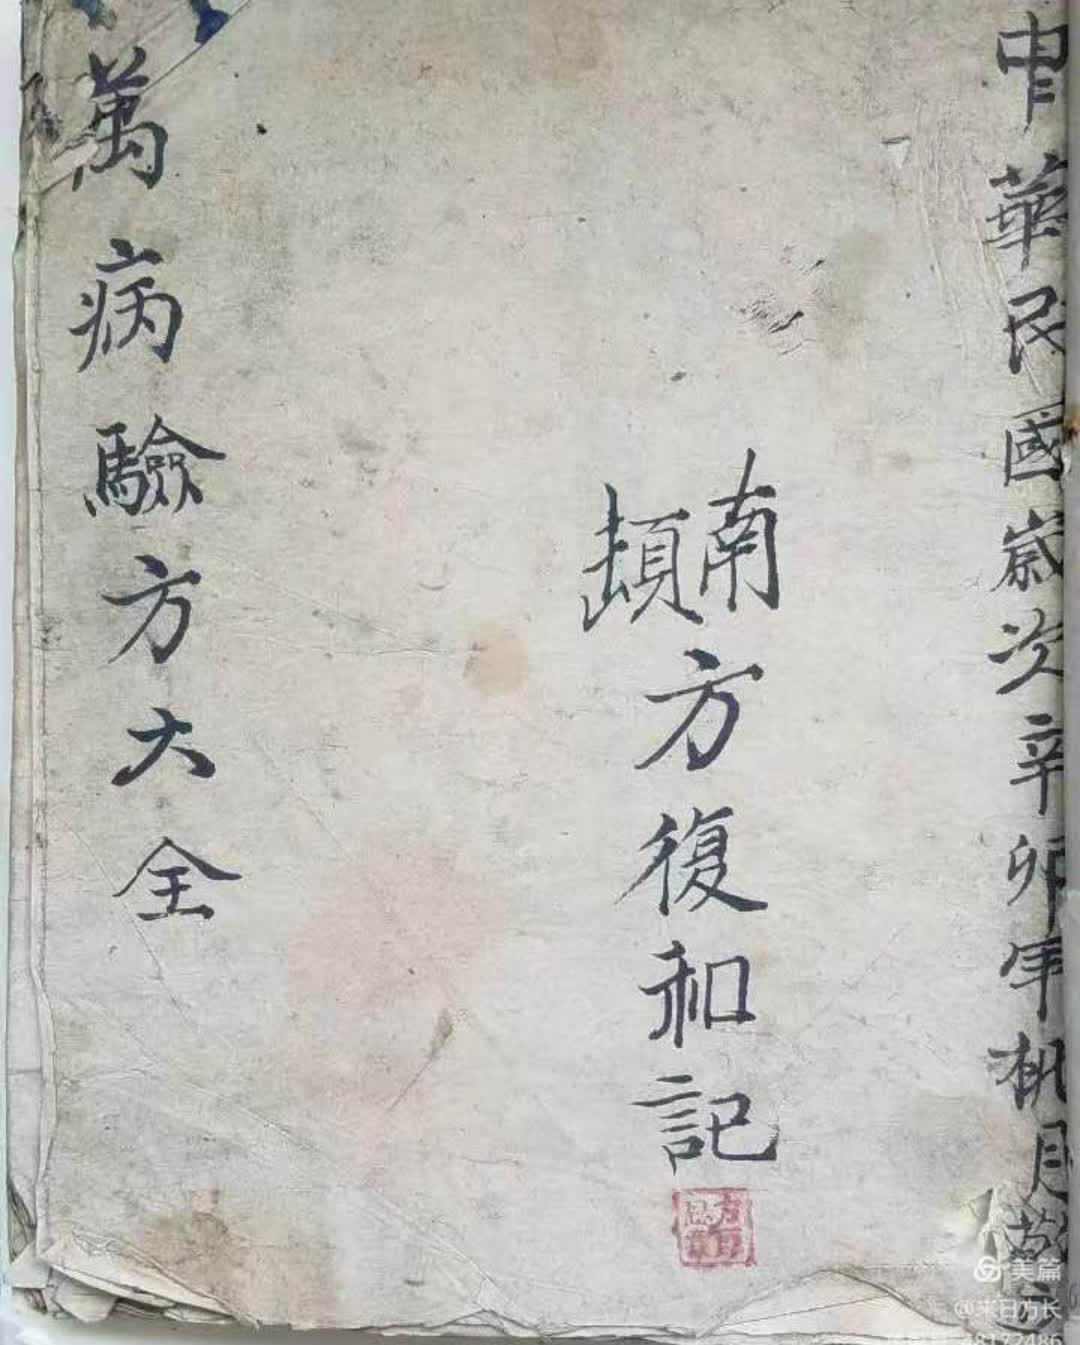 中華民國歲次辛卯年桃月
南
方復和記
萬病驗方大全
美篇
@来日方长